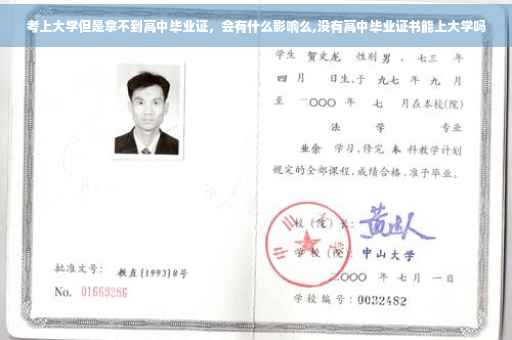 考上大学但是拿不到高中毕业证，会有什么影响么,没有高中毕业证书能上大学吗
学生 贺文龙 性别 男，七三 年
四 月 日生,于 九七 年 九 月
至 二〇〇〇 年 七 月在本校(院)
法 学 专业
业余 学习,修完 本 科教学计划
规定的全部课程,成绩合格,准予毕业。
校（院）长:
学 校（院）: 中山大学
二〇〇〇 年 七 月 一 日
学校编号: 0032482
批准文号: 教直[1993]8号
No. 01669286